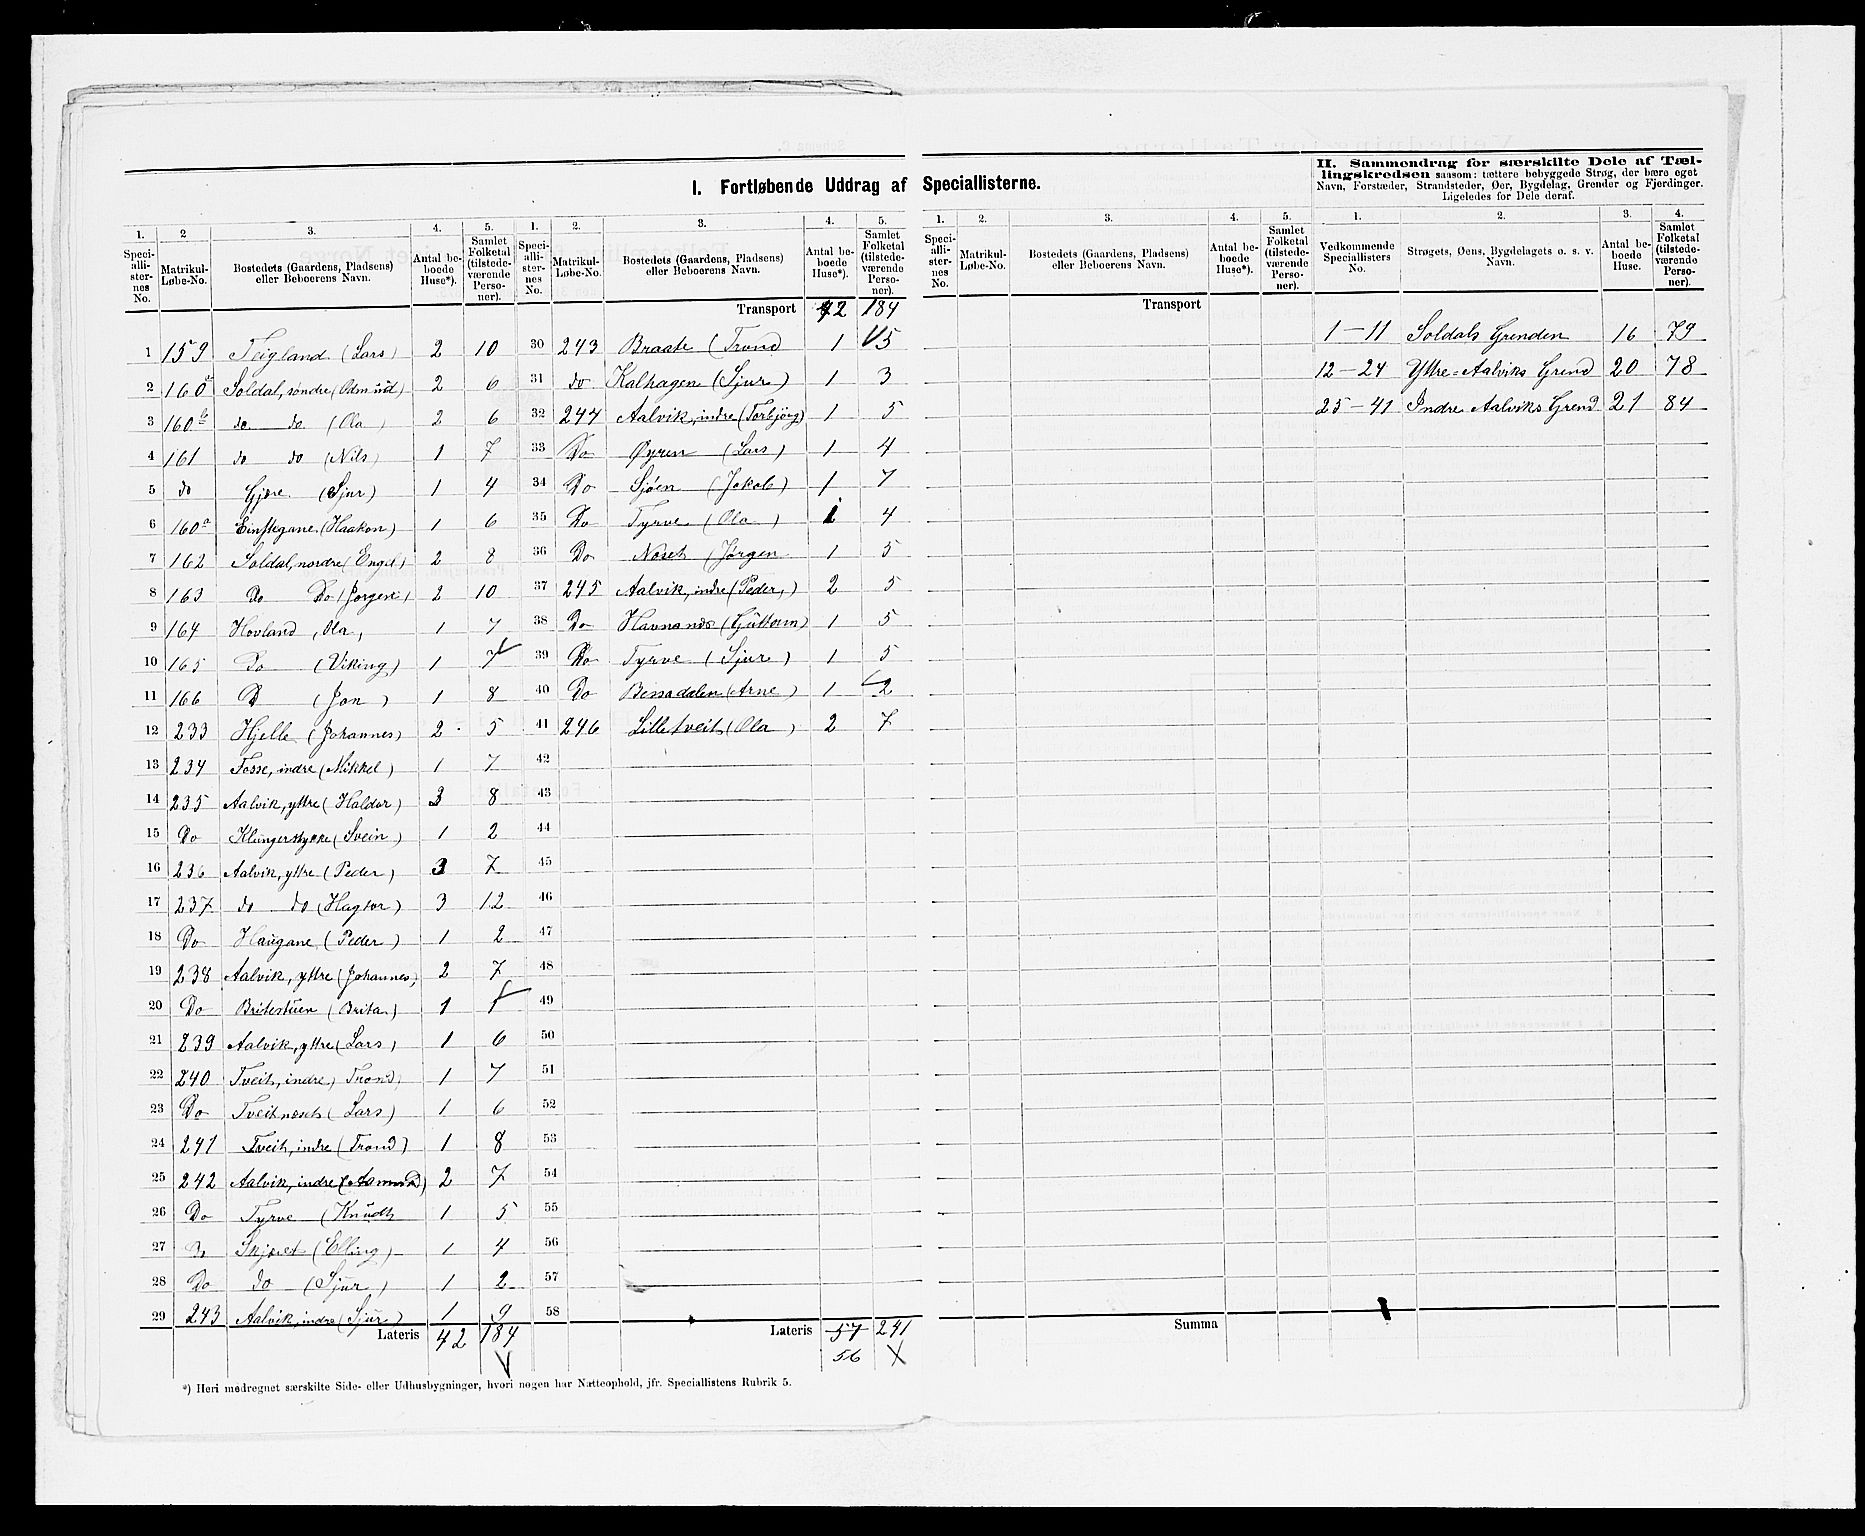 I. Fortløbende Uddrag af Speciallisterne.
II. Sammendrag for særskilte Dele af Tællingskredsen saasom: tættere bebyggede Strøg, der bære eget Navn, Forstæder, Strandsteder, Øer, Bygdelag, Grender og Fjerdinger. Ligeledes for Dele deraf.
1. 2 3. 4. 5. 1. 2. 3. 4. 5. 1. 2. 3. 4. 5. 1. 2. 3. 4.
Speciallisternes No. Matrikul-Løbe-No. Bostedets (Gaardens, Pladsens) eller Beboerens Navn. Antal beboede Huse*). Samlet Folketal (tilstedeværende Personer).
Speciallisternes No. Matrikul-Løbe-No. Bostedets (Gaardens, Pladsens) eller Beboerens Navn. Antal beboede Huse*). Samlet Folketal (tilstedeværende Personer).
Speciallisternes No. Matrikul-Løbe-No. Bostedets (Gaardens, Pladsens) eller Beboerens Navn. Antal beboede Huse*). Samlet Folketal (tilstedeværende Personer).
Vedkommende Speciallisters No. Strøgets, Øens, Bygdelagets o. s. v. Navn. Antal beboede Huse. Samlet Folketal (tilstedeværende Personer).
1 159 Teigland (Lars) 2 10
2 160a Soldal, søndre (Odmund) 2 6
3 160b do do (Ola) 2 6
4 161 do do (Nils) 1 7
5 do Gjære (Sjur) 1 4
6 160a Einstegane (Haakon) 1 6
7 162 Soldal, nordre (Engel) 2 8
8 163 Do Do (Jørgen) 2 10
9 164 Hovland (Ola) 1 7
10 165 Do (Viking) 1 7
11 166 D (Jon) 1 8
12 233 Hjelle (Johannes) 2 5
13 234 Fosse, indre (Mikkel) 1 7
14 235 Aalvik, yttre (Haldor) 3 8
15 Do Klungerstykke (Svein) 1 2
16 236 Aalvik, yttre (Peder) 3 7
17 237 do do (Hagtor) 3 12
18 Do Haugane (Peder) 1 2
19 238 Aalvik, yttre (Johannes) 2 7
20 Do Britestuen (Brita) 1 1
21 239 Aalvik, yttre (Lars) 1 6
22 240 Tveit, indre (Trond) 1 7
23 Do Tveitnæset (Lars) 1 6
24 241 Tveit, indre (Trond) 1 8
25 242 Aalvik, indre (Aamund) 2 7
26 Do Tyrve (Knudt) 1 5
27 Do Skjæret (Elling) 1 4
28 Do do (Sjur) 1 2
29 243 Aalvik, indre (Sjur) 1 9
Lateris 42 184
Transport 42 184
30 243 Braate (Trond 1 5
31 do Kalhagen (Sjur) 1 3
32 244 Aalvik, indre (Torbjörg) 1 5
33 Do Øyren (Lars) 1 4
34 Do Sjöen (Jakob) 1 7
35 Do Tyrve (Ola) 1 4
36 Do Næset (Jørgen 1 5
37 245 Aalvik, indre (Peder) 2 5
38 Do Havnanæs (Guttorm) 1 5
39 Do Tyrve (Sjur) 1 5
40 Do Bessadalen (Arne) 1 2
41 246 Lilletveit (Ola) 2 7
42
43
44
45
46
47
48
49
50
51
52
53
54
55
56
57
58
Lateris 57 241
56
Transport
Summa
1-11 Soldals Grenden 16 79
12-24 Yttre-Aalviks Grend 20 78
25-41 Indre Aalviks Grend 21 84
*) Heri medregnet særskilte Side- eller Udhusbygninger, hvori nogen har Natteophold, jfr. Speciallistens Rubrik 5.